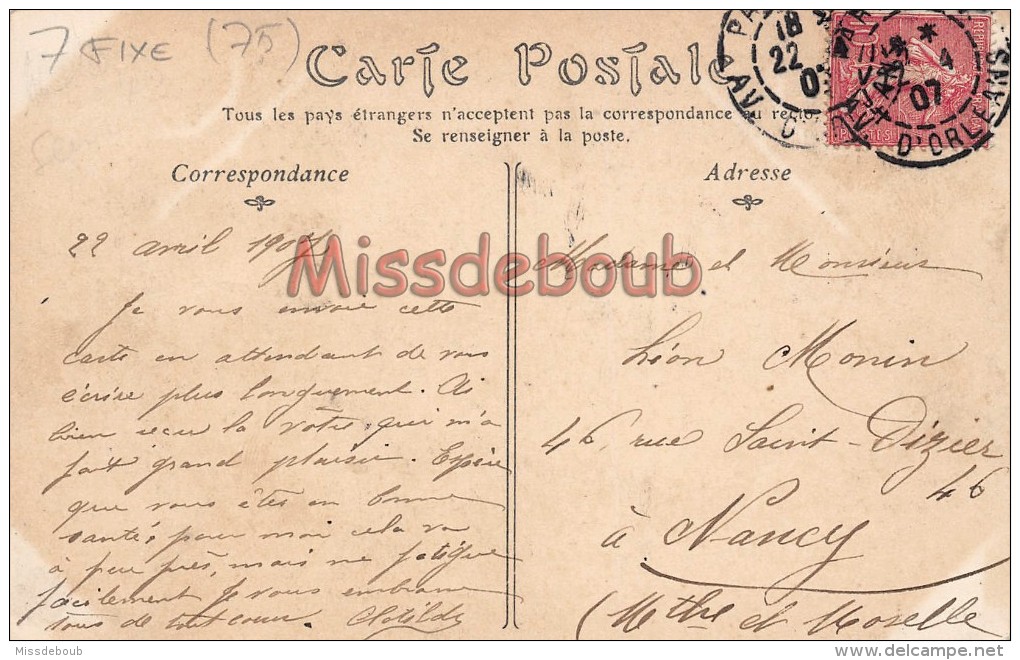 7 FIXE (75)
Carte Postale
Tous les pays étrangers n'acceptent pas la correspondance au recto.
Se renseigner à la poste.
Correspondance
Adresse
22 avril 1907
Je vous envoie cette
carte en attendant de vous
écrire plus longuement. Ai
bien reçu la vôtre, qui m'a
fait grand plaisir. Espère
que vous êtes en bonne
santé, pour moi cela va
à peu près, mais me fatigue
facilement. Je vous embrasse
tous de tout coeur. Clotilde
Madame et Monsieur
Léon Monin
46, rue Saint-Dizier
46
à Nancy
(Mthe et Moselle
Missdeboub
18
22
07
AV. D'ORLEANS
4
07
Missdeboub
http://www.delcampe.net